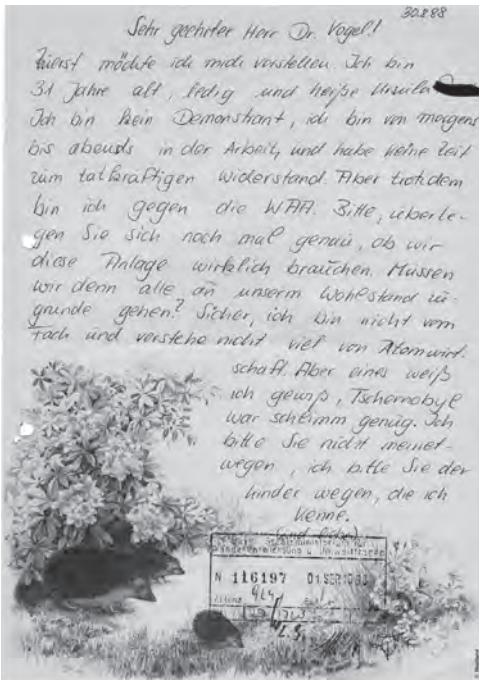 30.8.88
Sehr geehrter Herr Dr. Vogel!
Zuerst möchte ich mich vorstellen. Ich bin
31 Jahre alt, ledig und heiße Ursula
Ich bin kein Demonstrant, ich bin von morgens
bis abends in der Arbeit, und habe keine Zeit
zum tatkräftigen Widerstand. Aber trotzdem
bin ich gegen die WAA. Bitte, überle-
gen Sie sich noch mal genau, ob wir
diese Anlage wirklich brauchen. Müssen
wir denn alle an unserm Wohlstand zu-
grunde gehen? Sicher, ich bin nicht vom
Fach und verstehe nicht viel von Atomwirt-
schaft. Aber eines weiß
ich gewiß, Tschernobyl
war schlimm genug. Ich
bitte Sie nicht meinet-
wegen, ich bitte Sie der
Kinder wegen, die ich
kenne.
N 116197 01 SEP 1988